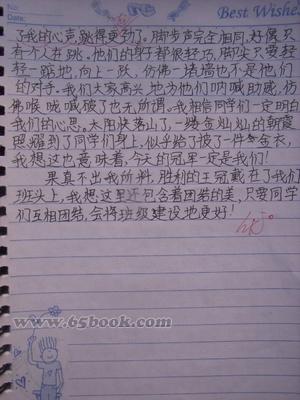 Date:
Best Wishes
了我的心竟跳得更劲了。脚步声完全相同,好像只
有个人在跳。他们的身子都很轻巧,脚尖只要轻
轻一踮地,向上一跃,仿佛一堵墙也不是他们
的对手。我们大家高兴地为他们呐喊助威,仿
佛喉咙喊破了也无所谓。我相信同学们一定明白
我们的心思。太阳快落山了,一缕金灿灿的朝霞
照耀到了同学们身上,似乎给了披了一件金衣,
我想这也意味着,今天的冠军一定是我们!
果真不出我所料,胜利的王冠戴在了我们
班头上,我想这里还包含着团结的美,只要同学
们互相团结,会将班级建设地更好!
www.65book.com